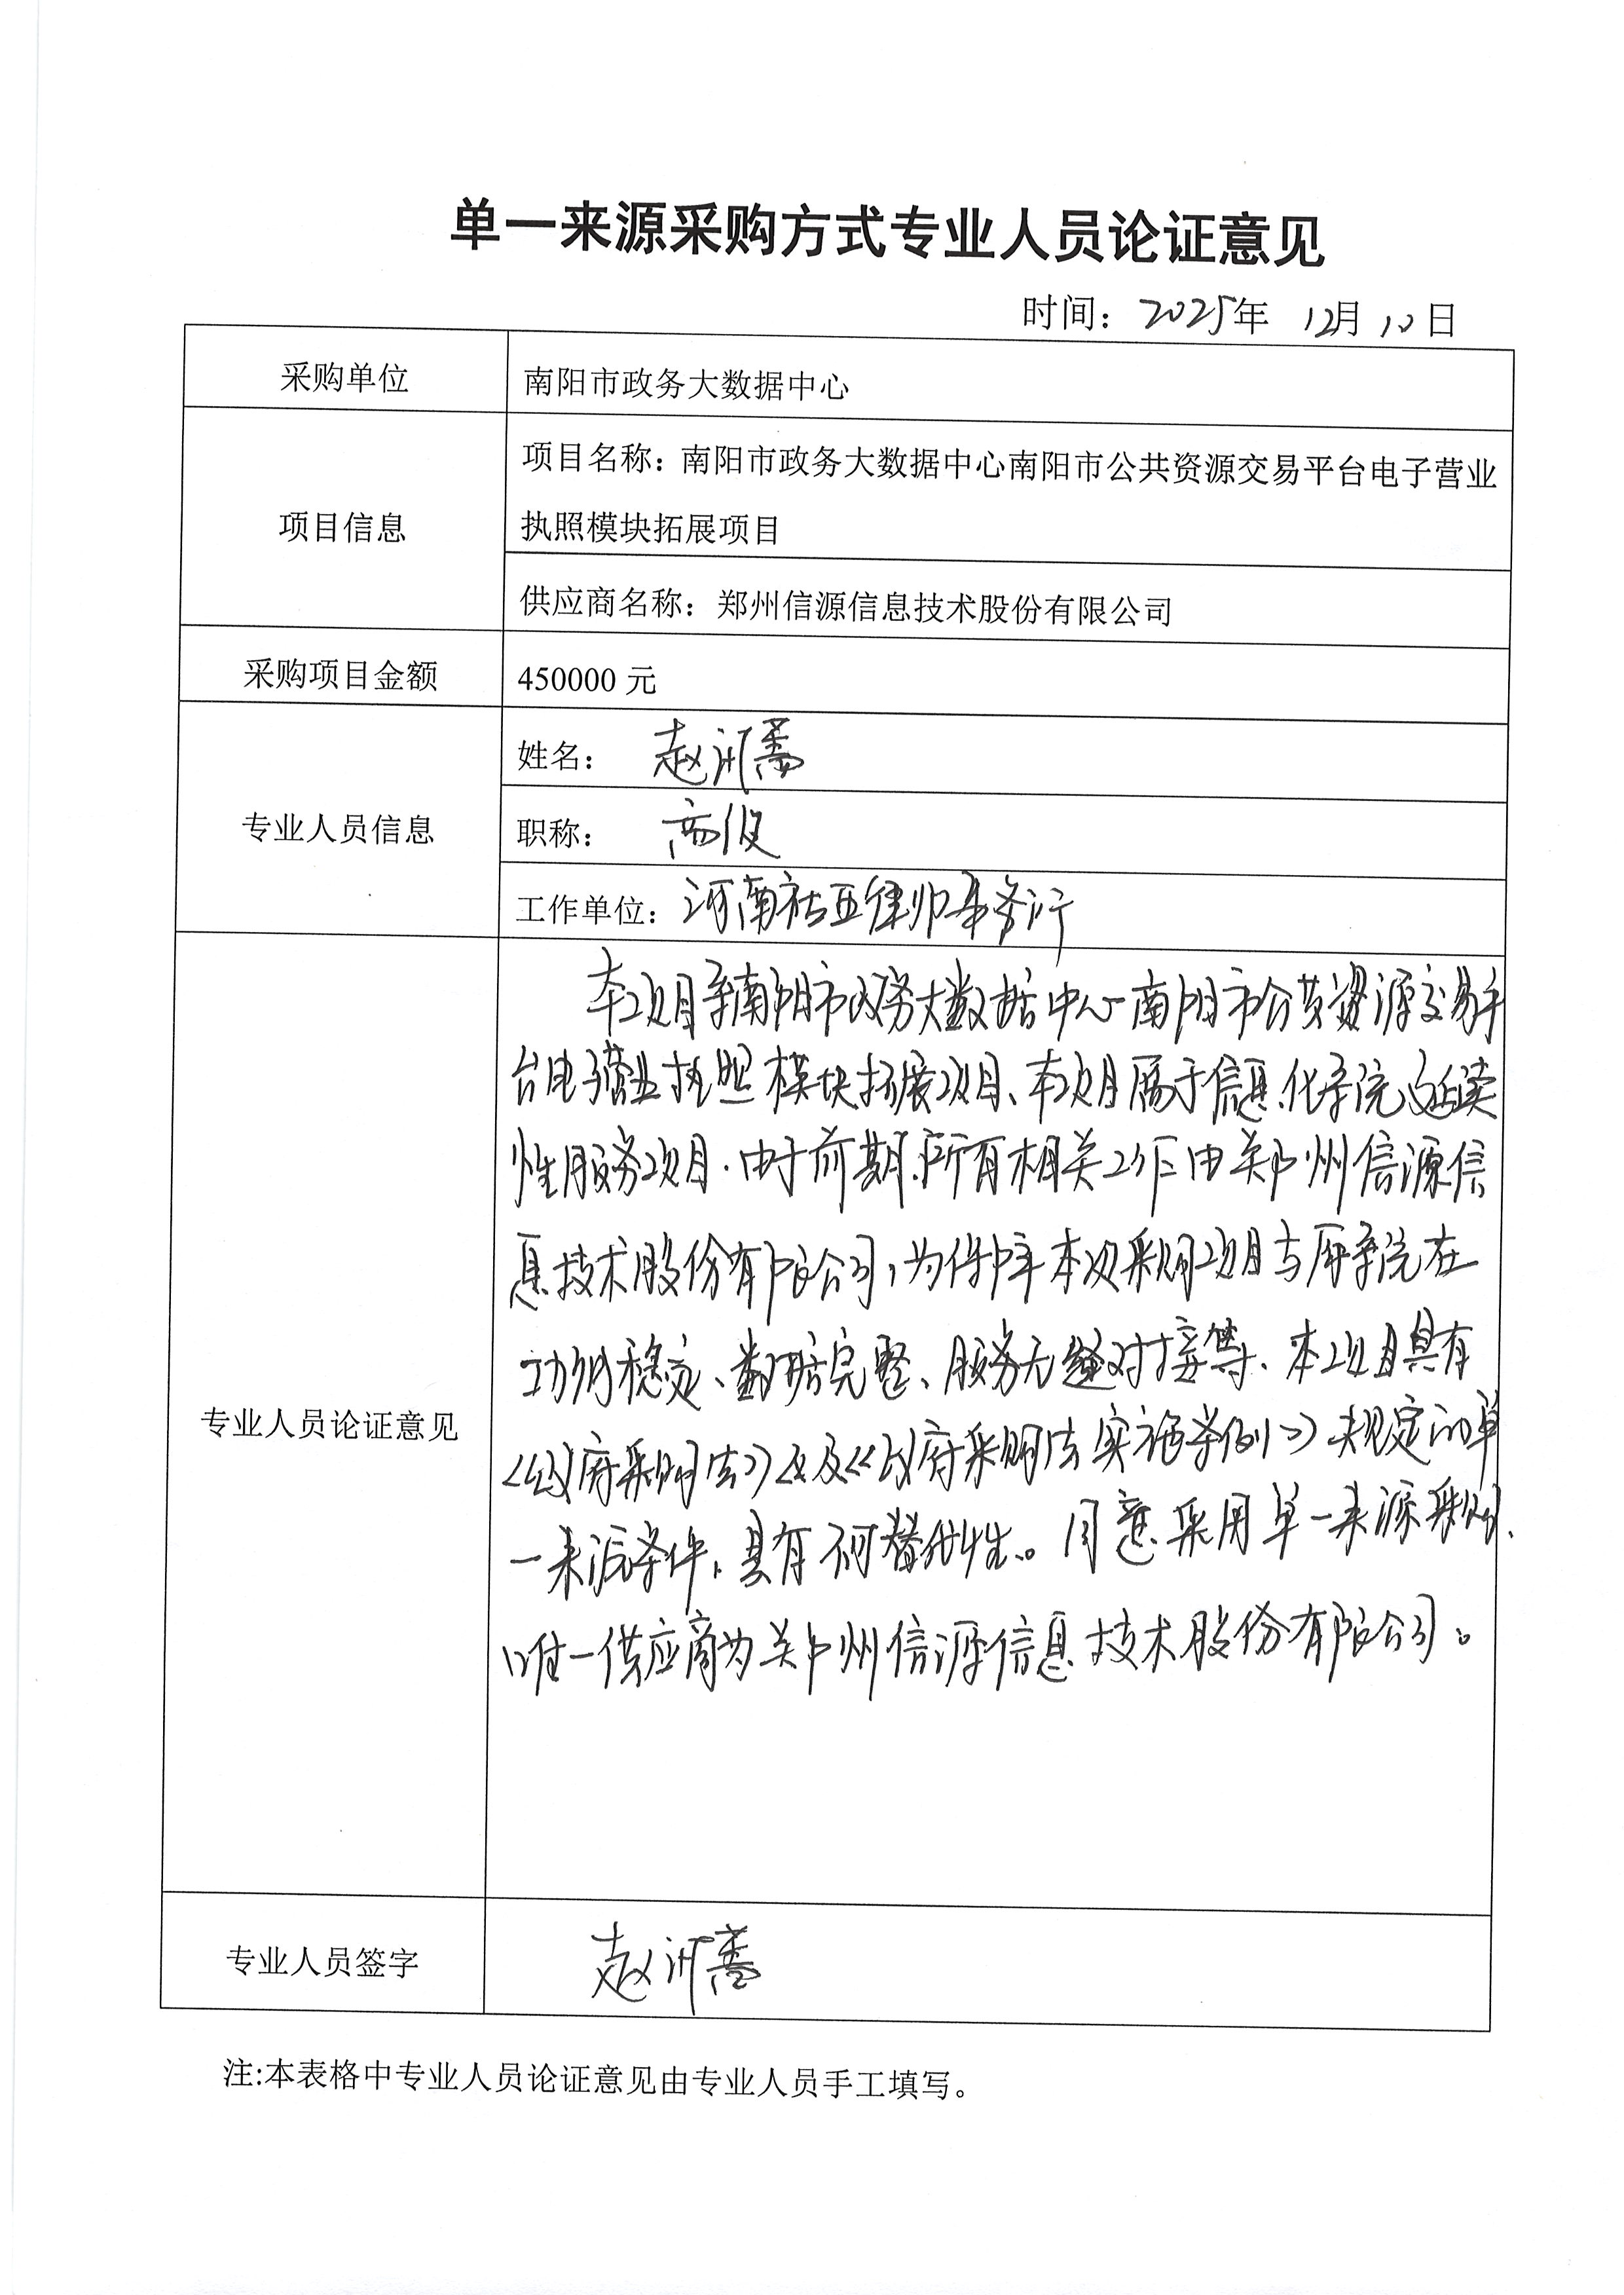 单一来源采购方式专业人员论证意见
时间：2025年 12月 10日
采购单位
南阳市政务大数据中心
项目信息
项目名称：南阳市政务大数据中心南阳市公共资源交易平台电子营业
执照模块拓展项目
供应商名称：郑州信源信息技术股份有限公司
采购项目金额
450000 元
专业人员信息
姓名： 赵
职称： 高级
工作单位：河南 律师事务所
专业人员论证意见
本项目系南阳市政务大数据中心南阳市公共资源交易平
台电子营业执照模块拓展项目、本项目属于信息化系统延续
性服务项目．由于前期所有相关工作由郑州信源信
息技术股份有限公司，为保障本次采购项目与原系统在
功能稳定、数据完整、服务无缝对接等、本项目具有
《政府采购法》以及《政府采购法实施条例》规定的单
一来源条件，具有不可替代性。同意采用单一来源采购，
唯一供应商为郑州信源信息技术股份有限公司。
专业人员签字
赵
注:本表格中专业人员论证意见由专业人员手工填写。